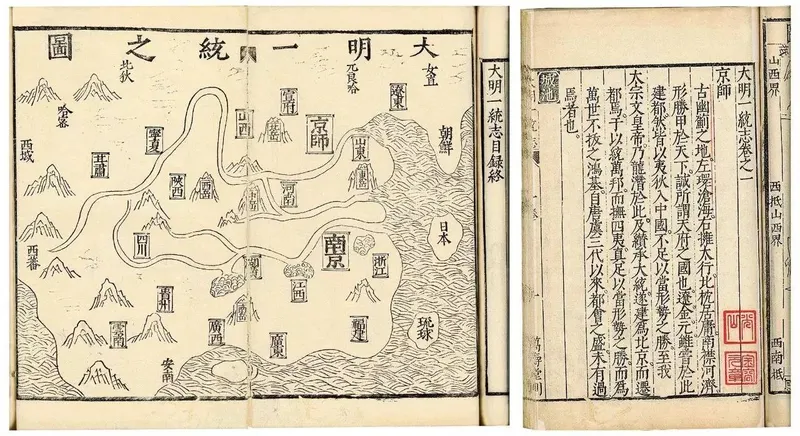 大明一統之圖
女直
兀良哈
北狄
遼東
朝鮮
宣府
京師
山西
山東
寧夏
陝西
河南
西域
西蕃
四川
南京
日本
浙江
江西
貴州
雲南
廣西
廣東
福建
琉球
安南
大明一統志目錄終
山西界
西抵山西界
西南抵
大明一統志卷之一
京師
古幽薊之地左環滄海右擁太行北枕居庸南襟河濟
形勝甲於天下誠所謂天府之國也遼金元雖嘗於此
建都然皆以夷狄入中國不足以當形勢之勝至我
太宗文皇帝乃龍潛於此及纘承大統遂建為北京而遷
都焉于以統萬邦而撫四夷真足以當形勢之勝而為
萬世不拔之鴻基自唐虞三代以來都會之盛未有過
焉者也。
城池
萬壽堂刊